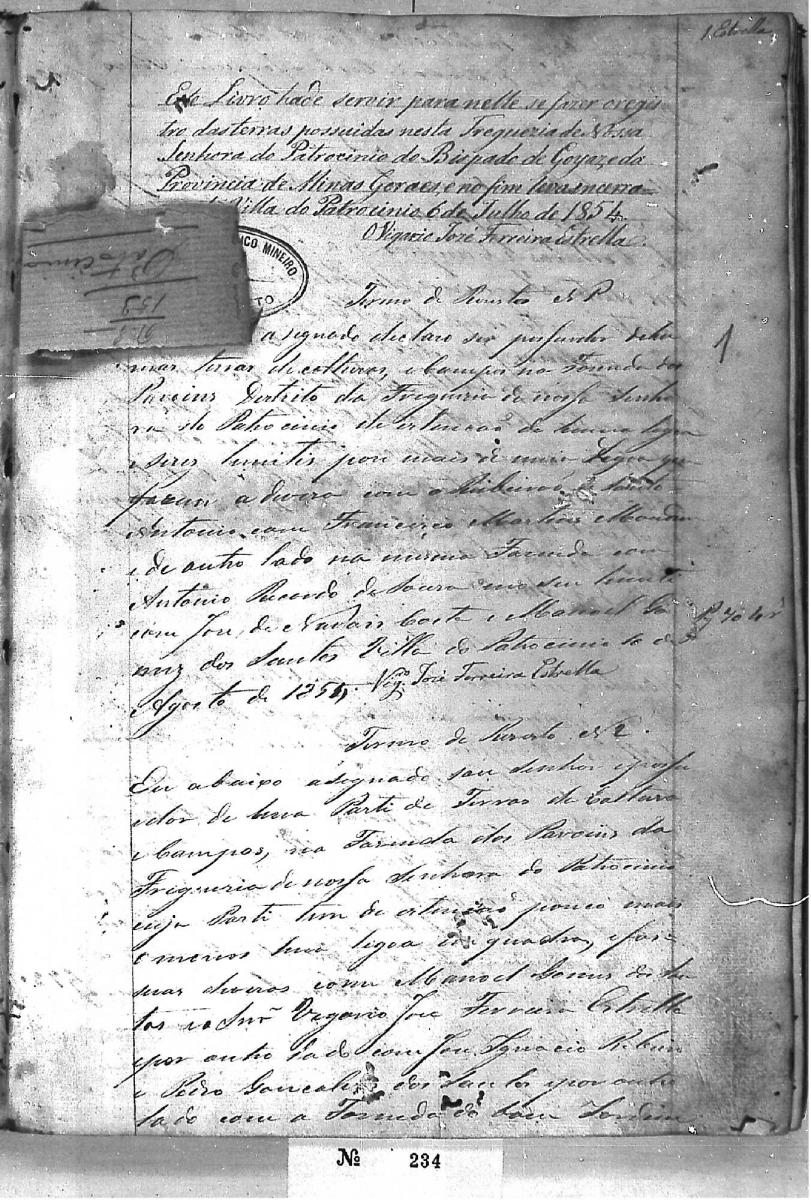 1 Estrella
Este Livro hade servir para nelle se fazer o regis
tro das terras possuidas nesta Freguezia de Nossa
Senhora do Patrocinio do Bispado de Goyaz, e da
Provincia de Minas Geraes, e no fim leva
Villa do Patrocinio 6 de Julho de 1854.
O Vigario José Ferreira Estrella.
Patrocinio
159
CO MINEIRO
TO
Termo de
1
asignado declaro ser possuidor de
mas terras de culturas, e Campos na Fazenda dos
Pavoins Destrito da Freguezia de nossa Senho
ra do Patrocinio de extenção de huma legoa
e seus por mais de meia Legoa que
fazem a diviza com o Ribeirão de Santo
Antonio com Francisco Martins
e de outro lado na mesma Fazenda com
Antonio de Souza
com Jose de Costa e Manoel Go
mez dos Santos Villa do Patrocinio de
Agosto de 1854. Vigro. José Ferreira Estrella
Termo de N 2.
Eu abaixo asignado sou senhor e possu
idor de hua Parte de Terras de Cultura
e Campos, na Fazenda dos Pavoins da
Freguezia de nossa Senhora do Patrocinio
cuja Parte tem de extenção pouco mais
o menos hua legoa em quadro, e faz
suas divizas com Manoel Gomes dos San
tos e o Snr. Vegario Jose Ferreira Estrella
e por outro lado com Jose Ignacio Ribeiro
e Pedro Goncalves dos Santos e por outro
lado com a Fazenda do bom Jardim
Nº 234